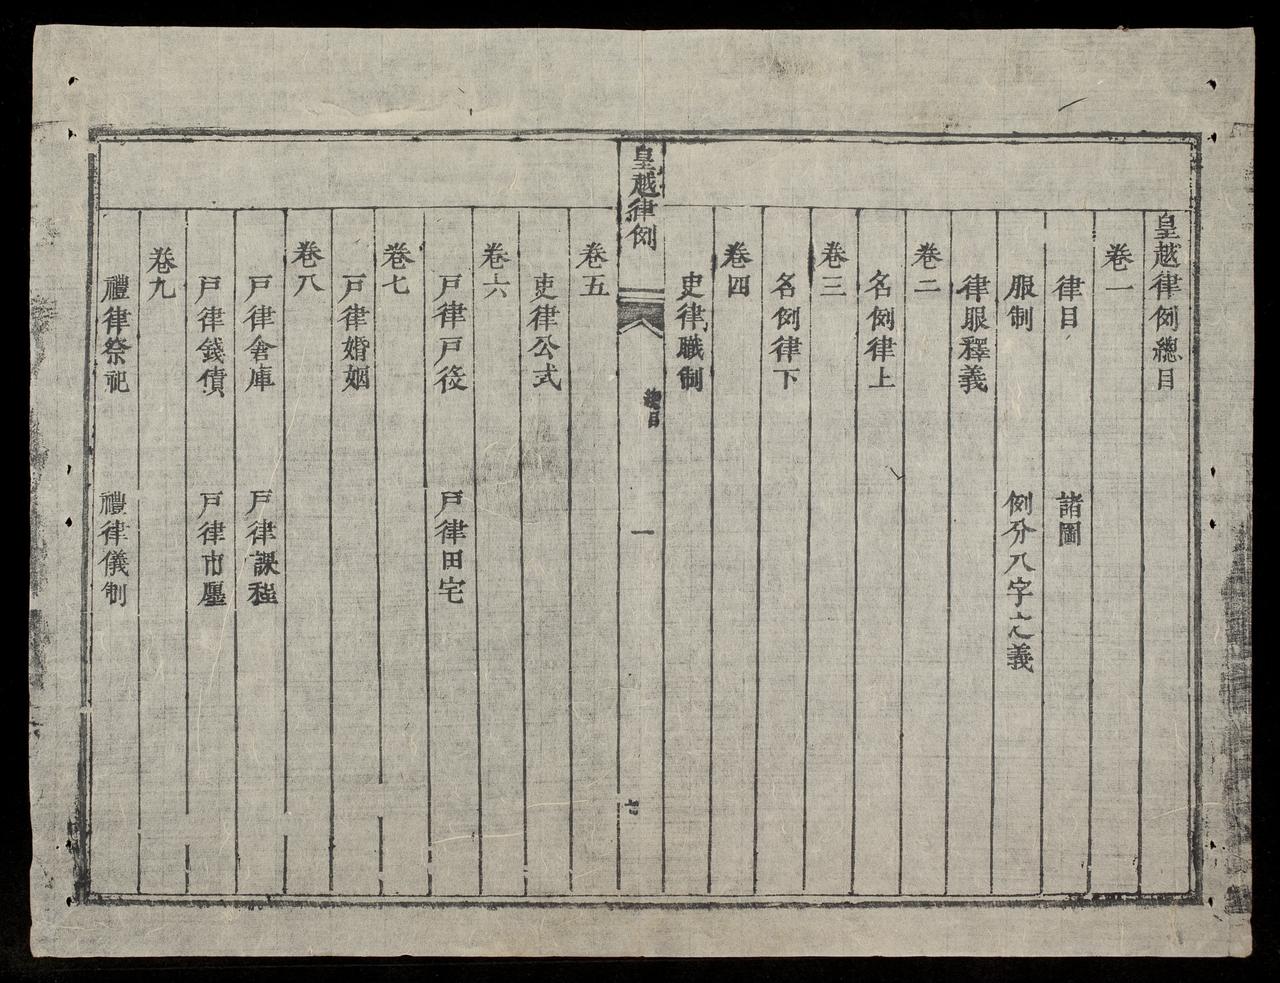 皇越律例總目
卷一
律目　諸圖
服制　例分八字之義
律服釋義
卷二
名例律上
卷三
名例律下
卷四
吏律職制
皇越律例
總目
一
卷五
吏律公式
卷六
戸律戸役　戸律田宅
卷七
戸律婚姻
卷八
戸律倉庫　戸律課程
戸律錢債　戸律市廛
卷九
禮律祭祀　禮律儀制